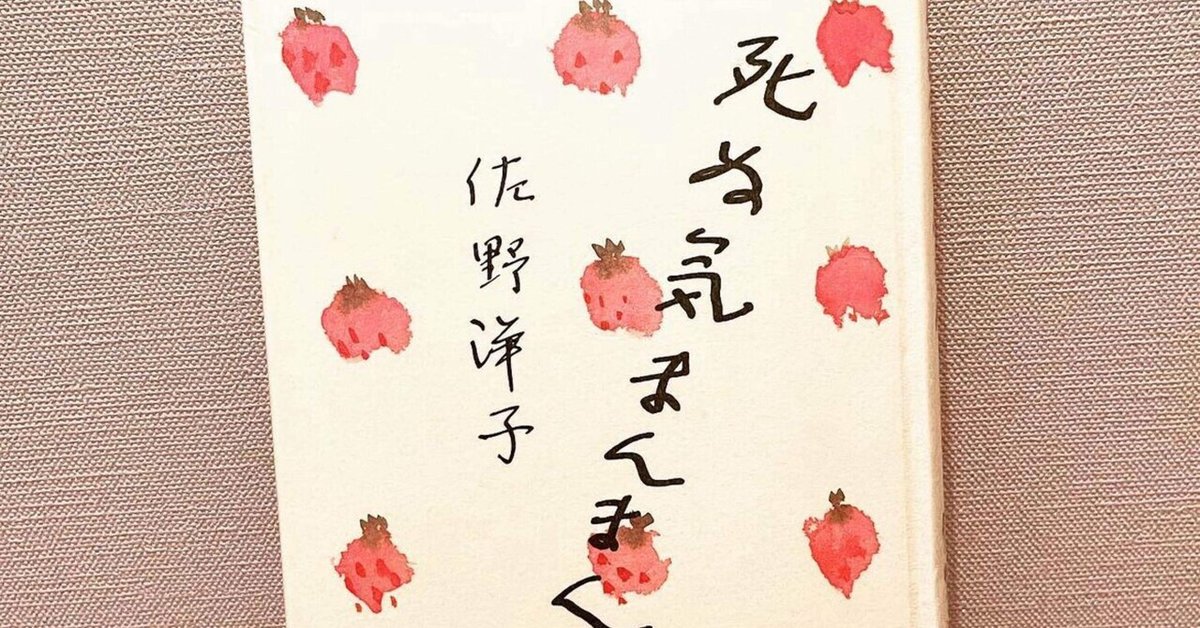 死ぬ気まんまん
佐野洋子